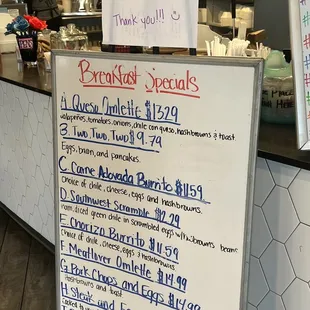 Thank you!!!
Breakfast Specials
A Queso Omlette $13.29
Jalapeños, tomatoes, onions, chile con queso, hashbrowns & toast
B Two, Two, Two $9.79
Eggs, bacon, and pancakes.
C Carne Adovada Burrito $11.59
Choice of chile, cheese, eggs and hashbrowns.
D Southwest Scramble
ham, diced green chile in scrambled eggs with browns beans
E Chorizo Burrito $11.59
Choice of chile, cheese, eggs & hashbrowns
F Meatlover Omlette $14.99
hashbrowns and toast
G Pork Chops and Eggs $14.99
H Steak and